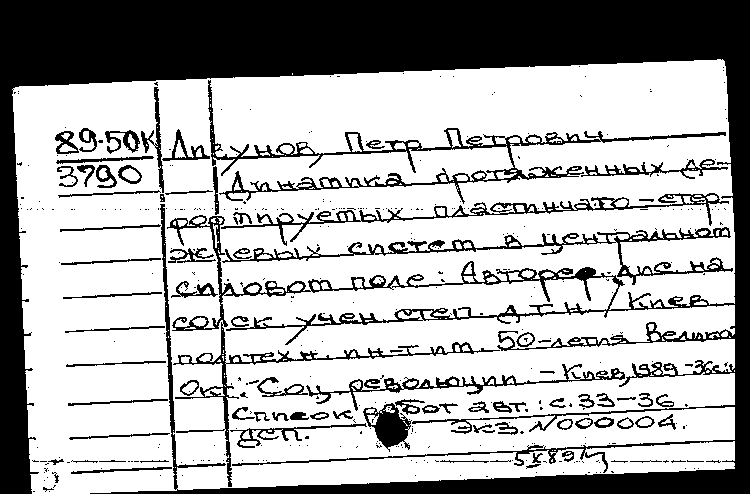 89-50К Лизунов, Петр Петрович
3790
Динамика протяженных де-
формируемых пластинчато-стер-
жневых систем в центральном
силовом поле: Автореф. дис. на
соиск. учен. степ. д.т.н. / Киев.
политехн. ин-т им. 50-летия Великой
Окт. Соц. революции. - Киев, 1989 - 36с.
Список работ авт.: с. 33-36.
дсп. Экз. N000004.
5 X 89
5